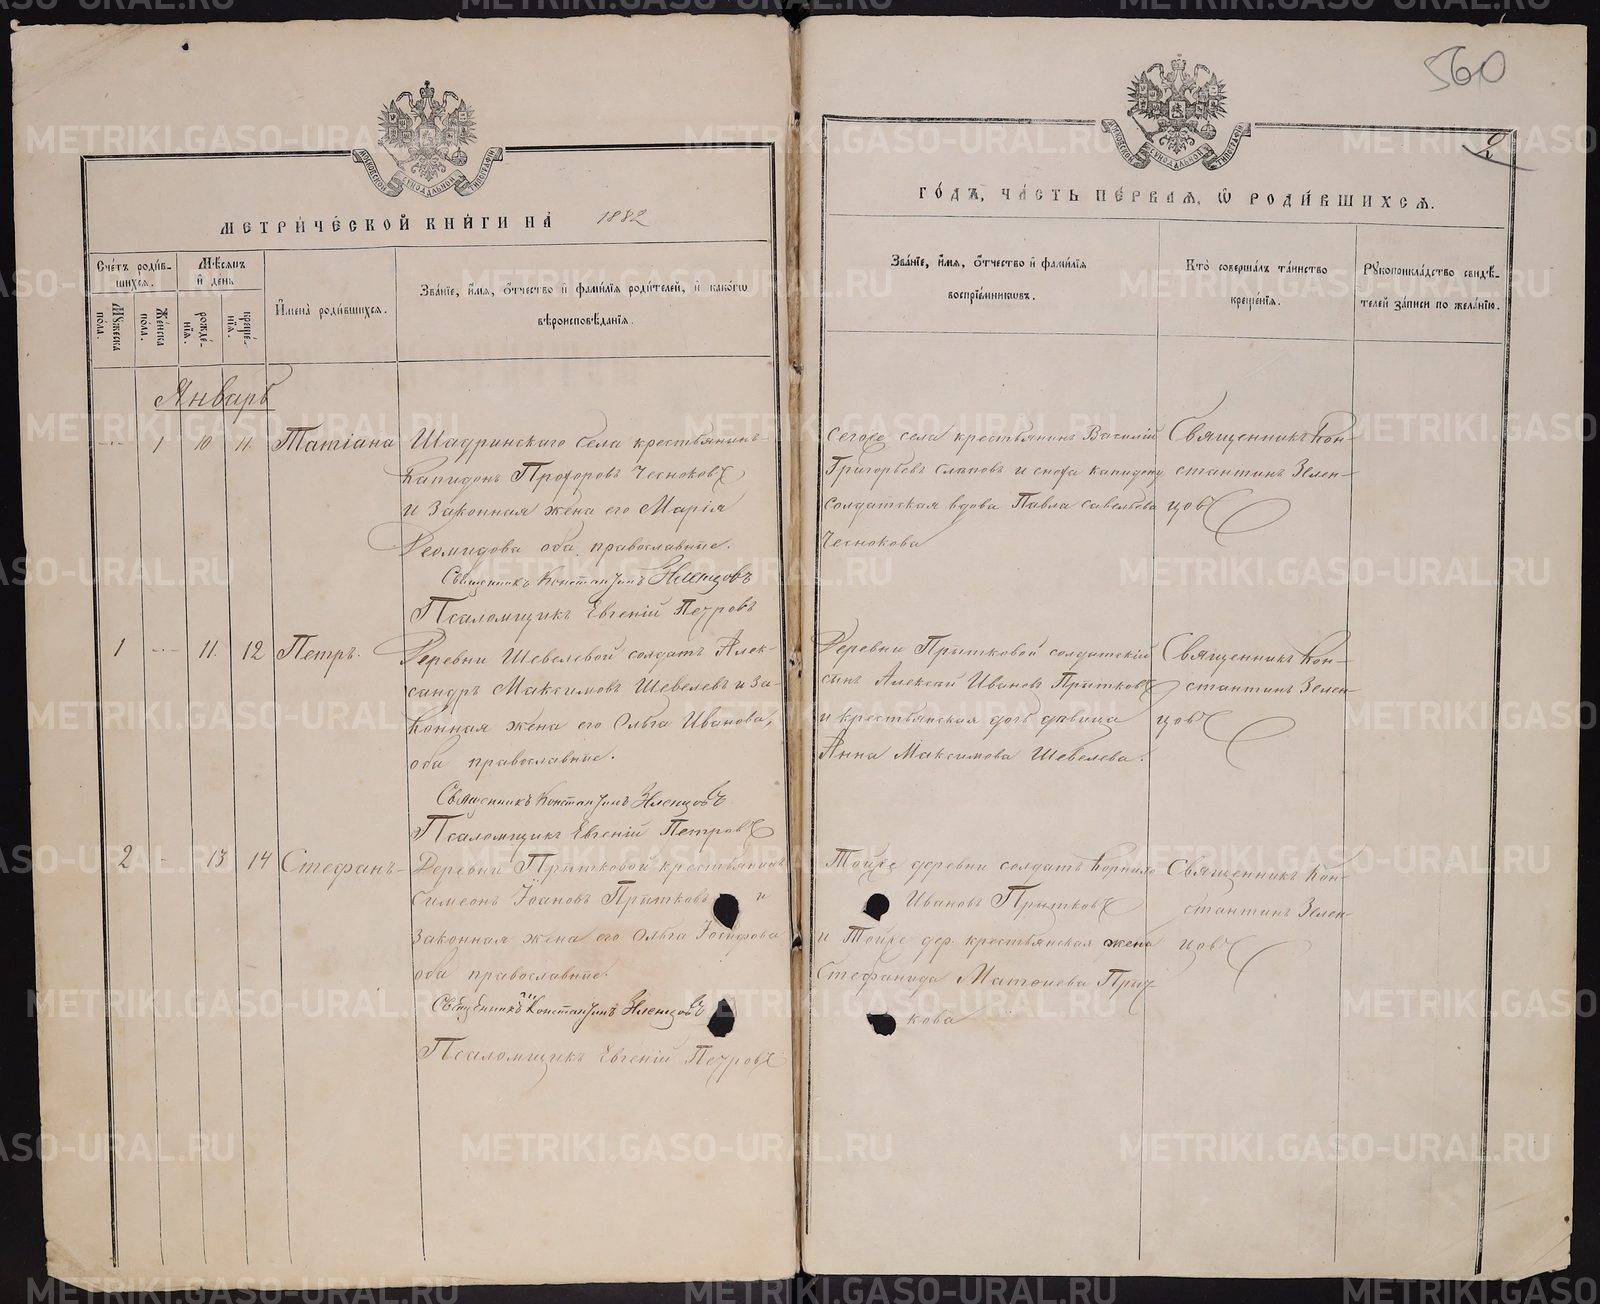 560
2
МЕТРИ́ЧЕСКОЙ КНИ́ГИ НА̀ 1882
ГО́ДЪ, ЧА́СТЬ ПЕ́РВАѦ, Ѡ҆ РОДИ́ВШИХСѦ.
Сче́тъ роди́вшихсѧ.
Мꙋ́жеска по́ла.
Же́нска по́ла.
Мѣ́сѧцъ и҆ де́нь
рожде́нїѧ.
креще́нїѧ.
И҆мена̀ роди́вшихсѧ.
Зва́нїе, и҆́мѧ, ѻ҆́тчество и҆ фами́лїѧ роди́телей, и҆ како́гѡ
вѣроисповѣ́данїѧ.
Зва́нїе, и҆́мѧ, ѻ҆́тчество и҆ фами́лїѧ
воспрїе́мникѡвъ.
Кто̀ соверша́лъ та́инство
креще́нїѧ.
Рꙋкоприкла́дство свидѣ́-
телей за́писи по жела́нїю.
Январь
1 10 11 Татіана
Шадринскаго села крестьянинъ
Капидонъ Прохоровъ Чесноковъ
и законная жена его Марія
Деомидова оба православные.
Священникъ Константинъ Зеленцовъ
Псаломщикъ Евгеній Петровъ
сегоже села крестьянинъ Василій
Григорьевъ и сноха
Солдатская вдова Павла Савельева
Чеснокова
Священникъ Кон-
стантинъ Зелен-
цовъ
1 11. 12 Петръ.
Деревни Шевелевой солдатъ Алек-
сандръ Максимовъ Шевелевъ и за-
конная жена его Ольга Иванова,
оба православные.
Священникъ Константинъ Зеленцовъ
Псаломщикъ Евгеній Петровъ
Деревни Прытковой солдатскій
сынъ Алексѣй Ивановъ Прытковъ
и крестьянская дочь дѣвица
Анна Максимова Шевелева.
Священникъ Кон-
стантинъ Зелен-
цовъ
2 13 14 Стефанъ
Деревни Прытковой крестьянинъ
Симеонъ Іоановъ Прытковъ и
законная жена его Ольга Іосифова
оба православные.
Священникъ Константинъ Зеленцовъ
Псаломщикъ Евгеній Петровъ
Тойже деревни солдатъ Корнило
Ивановъ Прытковъ
и Тойже дер. крестьянская жена
Стефанида Матѳиева Прыт-
кова
Священникъ Кон-
стантинъ Зелен-
цовъ
METRIKI.GASO-URAL.RU